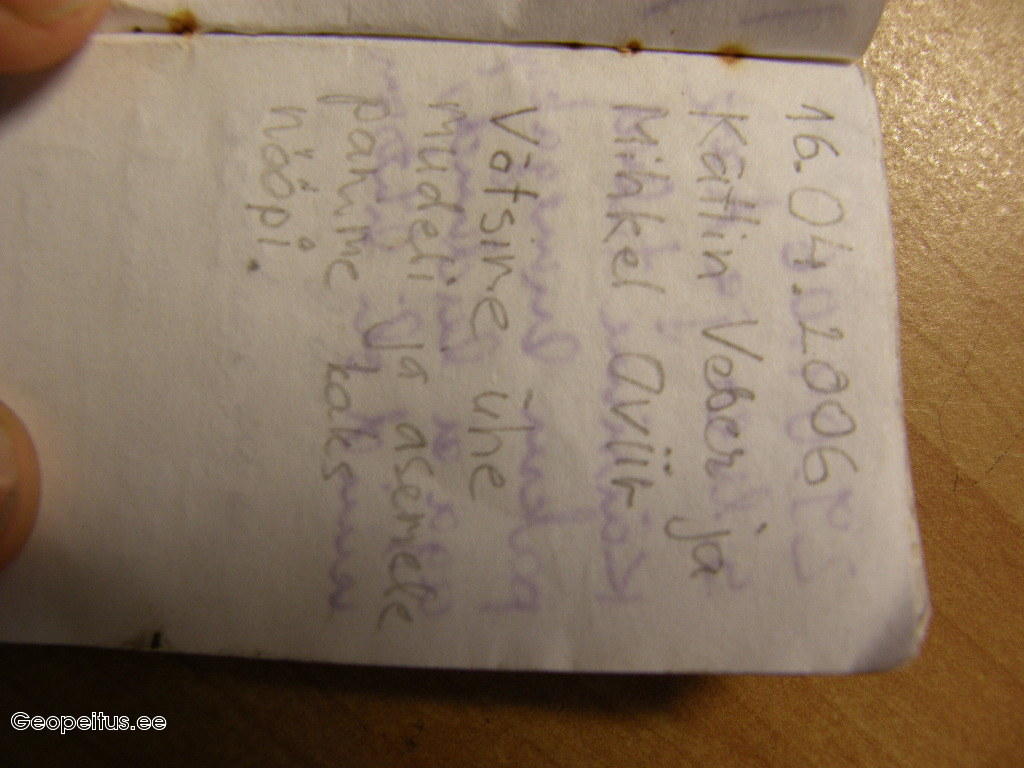 16.04.2006
Kätlin Veber ja
Mihkel Oviir
Võtsime ühe
mudeli ja asemele
panime kaks
nööpi.
Geopeitus.ee